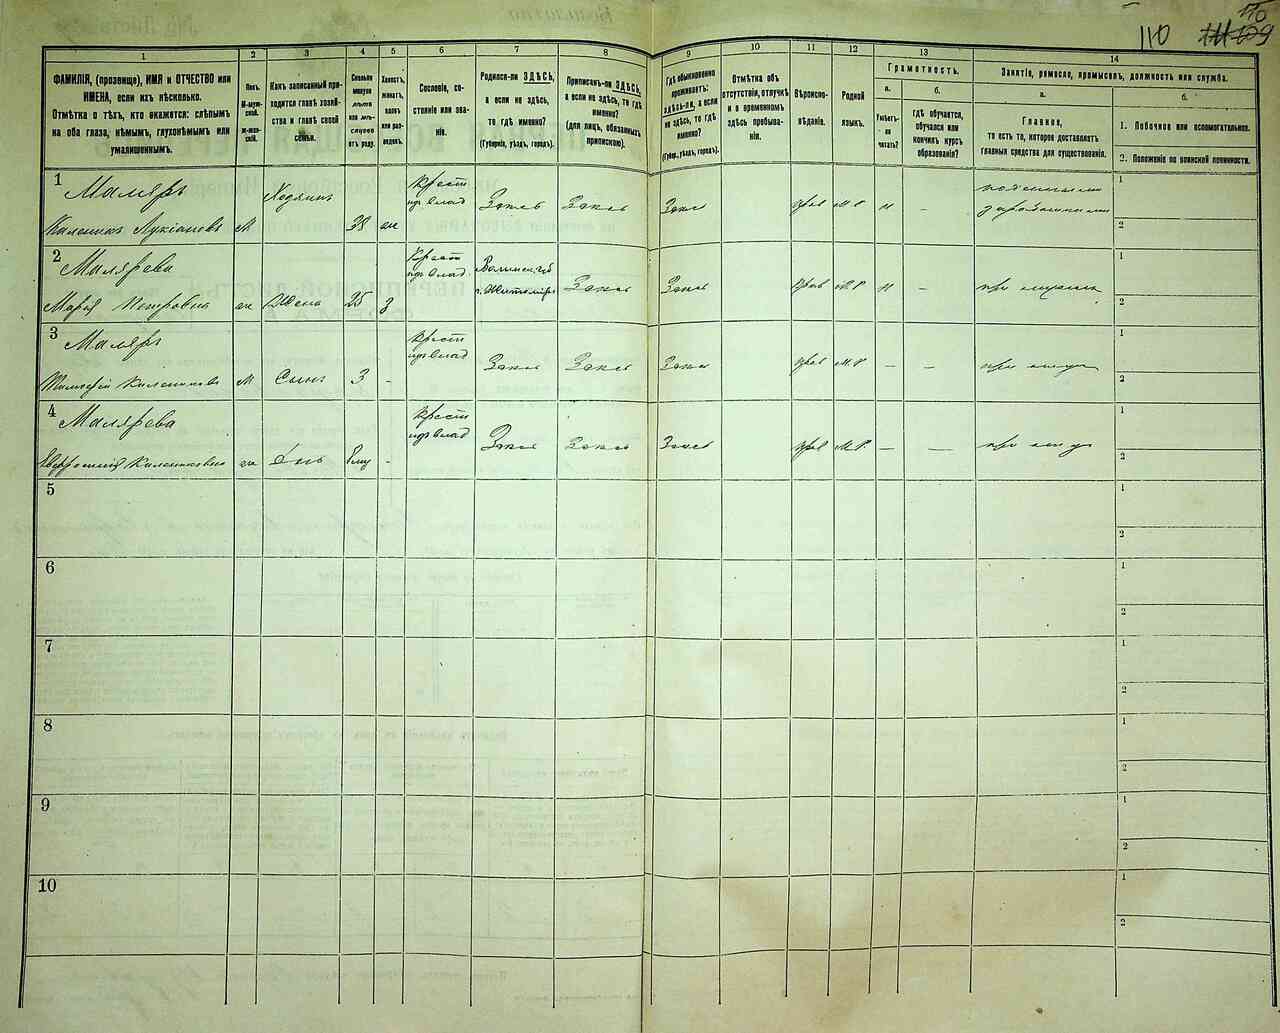 110
110
1
2
3
4
5
6
7
8
9
10
11
12
13
14
ФАМИЛІЯ, (прозвище), ИМЯ и ОТЧЕСТВО или
ИМЕНА, если ихъ нѣсколько.
Отмѣтка о тѣхъ, кто окажется: слѣпымъ
на оба глаза, нѣмымъ, глухонѣмымъ или
умалишеннымъ.
Полъ.
М-муж-
ской.
Ж-жен-
скій.
Какъ записанный при-
ходится главѣ хозяй-
ства и главѣ своей
семьи.
Сколько
минуло
лѣтъ
или мѣ-
сяцевъ
отъ роду.
Холостъ,
женатъ,
вдовъ
или раз-
веденъ.
Сословіе, со-
стояніе или зва-
ніе.
Родился-ли ЗДѢСЬ,
а если не здѣсь,
то гдѣ именно?
(Губернія, уѣздъ, городъ).
Приписанъ-ли ЗДѢСЬ,
а если не здѣсь, то гдѣ
именно?
(для лицъ, обязанныхъ
припискою).
Гдѣ обыкновенно
проживаетъ:
здѣсь-ли, а если
не здѣсь, то гдѣ
именно?
(Губер., уѣздъ, городъ).
Отмѣтка объ
отсутствіи, отлучкѣ
и о временномъ
здѣсь пребыва-
ніи.
Вѣроиспо-
вѣданіе.
Родной
языкъ.
Грамотность.
а.
Умѣетъ-
ли
читать?
б.
Гдѣ обучается,
обучался или
кончилъ курсъ
образованія?
Занятіе, ремесло, промыселъ, должность или служба.
а.
Главное,
то есть то, которое доставляетъ
главныя средства для существованія.
б.
1. Побочное или вспомогательное.
2. Положеніе по воинской повинности.
1
Маляръ
Каленикъ Лукіановъ
М
Хозяинъ
38
жн
Крест
из влад
Здесь
Здесь
Здесь
прав
М.Р.
н
—
1
2
2
Малярева
Марія Петровна
ж
Жена
25
З
Крест
из влад
Волынск. губ
г. Житоміръ
Здесь
Здесь
прав
М.Р.
н
—
при мужѣ
1
2
3
Маляръ
Тимофей Калениковъ
М
Сынъ
3
-
Крест
из влад
Здесь
Здесь
Здесь
прав
М.Р.
—
—
при отцѣ
1
2
4
Малярева
Евфросинія Калениковна
ж
Дочь
-
Крест
из влад
Здесь
Здесь
Здесь
прав
М.Р.
—
—
при отцѣ
1
2
5
1
2
6
1
2
7
1
2
8
1
2
9
1
2
10
1
2